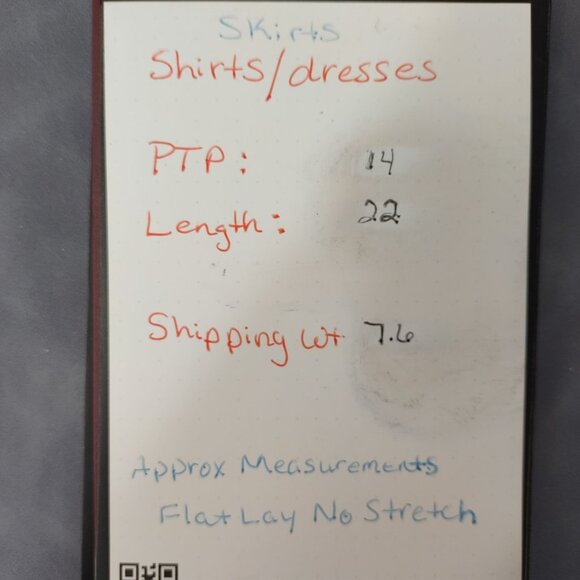 Skirts
Shirts/dresses
PTP: 14
Length: 22
Shipping Wt 7.6
Approx Measurements
Flat Lay No Stretch